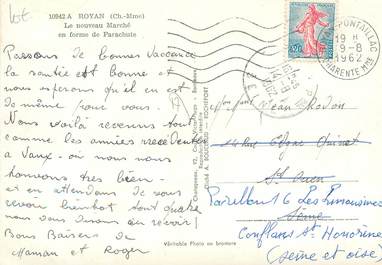 lot
10942 A ROYAN (Ch.-Mme)
Le nouveau Marché
en forme de Parachute
Passons de bonnes vacances
la santée est bonne et
nous esperons qu'il en est
de même pour vous.
Nous voilà revenus tout
comme les années
à Vaux où nous nous
trouvons très bien
et en attendant de vous
revoir bientot tout quatre
nous vous disons au revoir!
Bons Baisers de
Maman et Roger
Véritable Photo au bromure
PONTAILLAC
19 H
19-8
1962
CHARENTE Mme
Jean Rodon
Rue Edgar Quinet
St Ouen
Pavillon 16 Les Limousines
Seine
Conflans St Honorine
(seine et oise)